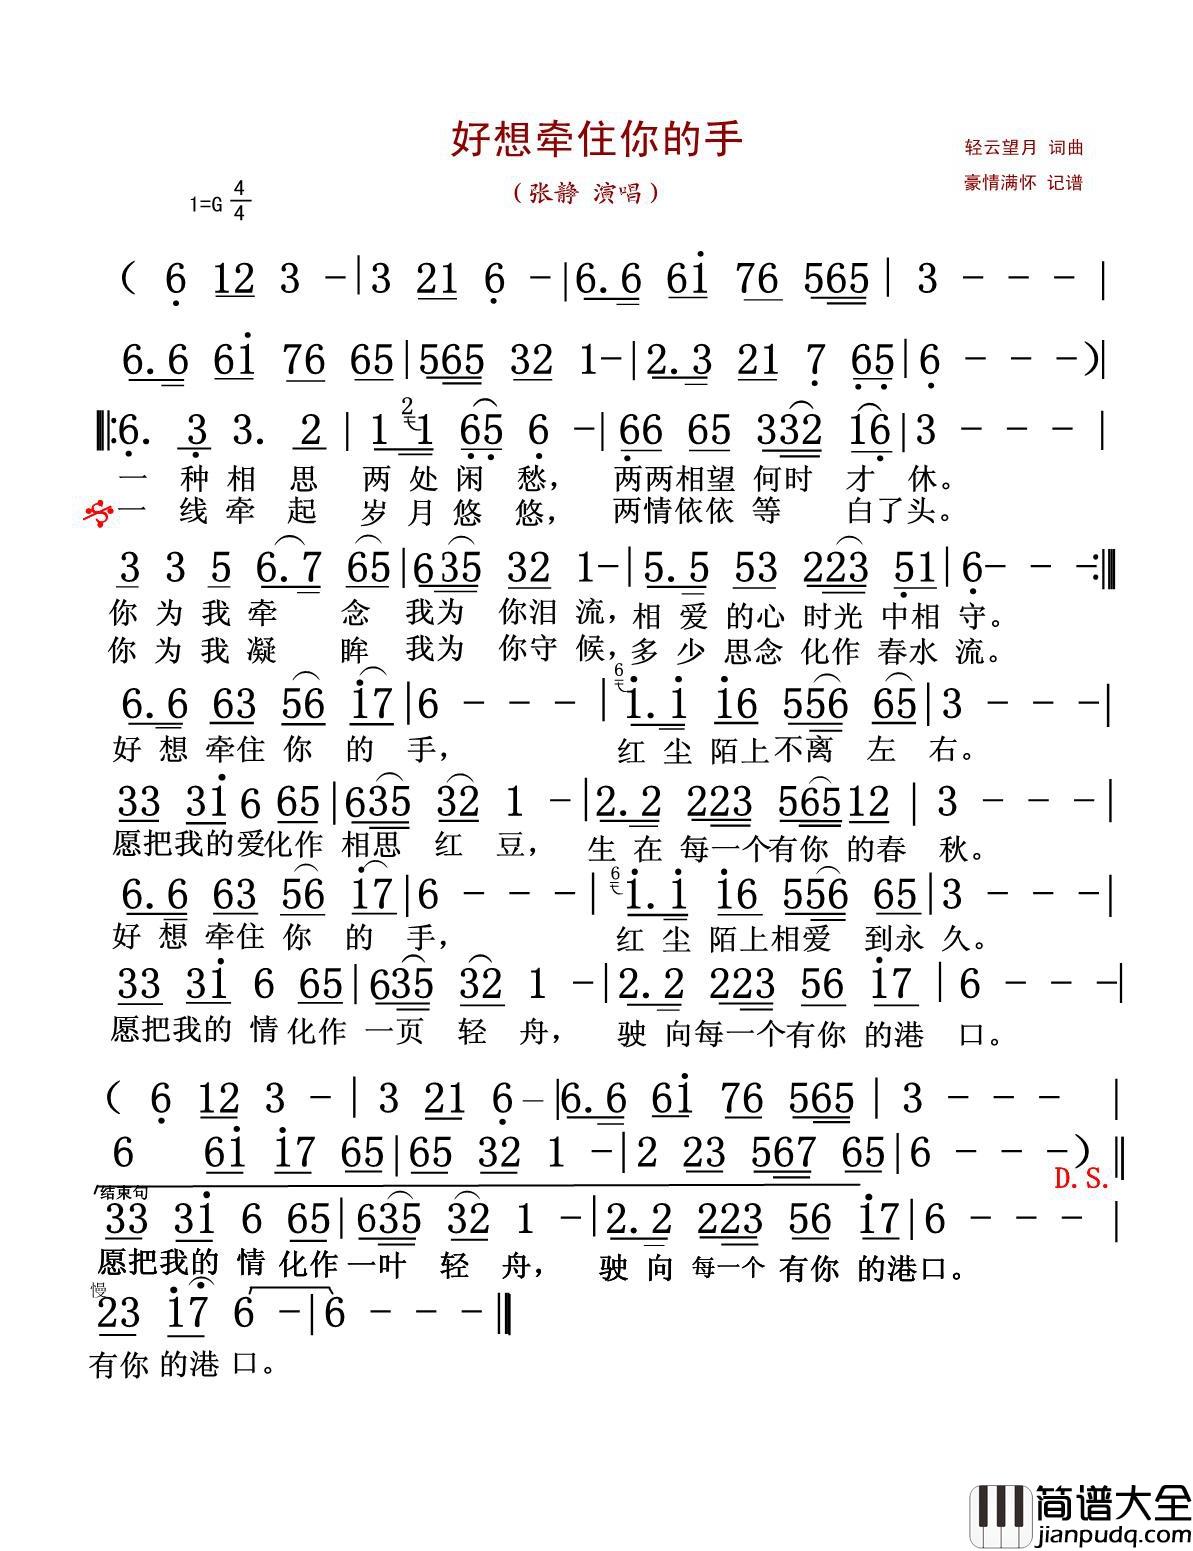 好想牵住你的手
轻云望月 词曲
(张静 演唱)
豪情满怀 记谱
1=G 4/4
( 6 12 3 - | 3 21 6 - | 6.6 61 76 565 | 3 - - - |
6.6 61 76 65 | 565 32 1- | 2.3 21 7 65 | 6 - - - ) |
|: 6. 3 3. 2 | 1 2 1 65 6 - | 66 65 332 16 | 3 - - - |
一 种 相 思 两 处 闲 愁, 两两相望 何时 才 休。
一 线 牵 起 岁 月 悠 悠, 两情依依 等 白了头。
3 3 5 6.7 65 | 635 32 1- | 5.5 53 223 51 | 6- - - :|
你 为 我 牵 念 我为 你泪 流, 相 爱 的心 时光 中相 守。
你 为 我 凝 眸 我为 你守 候, 多 少 思念 化作 春水 流。
6.6 63 56 17 | 6 - - - | 6 1.1 16 556 65 | 3 - - - |
好 想 牵住 你 的 手, 红 尘 陌上 不离 左 右。
33 31 6 65 | 635 32 1 - | 2.2 223 56512 | 3 - - - |
愿把我的爱化作 相思 红 豆, 生 在 每一个有你 的春 秋。
6.6 63 56 17 | 6 - - - | 6 1.1 16 556 65 | 3 - - - |
好 想 牵住 你 的 手, 红 尘 陌上相爱 到永 久。
33 31 6 65 | 635 32 1 - | 2.2 223 56 17 | 6 - - - |
愿把我的 情 化作 一页 轻 舟, 驶 向每一个有你 的港 口。
( 6 12 3 - | 3 21 6 - | 6.6 61 76 565 | 3 - - - |
6 61 17 65 | 65 32 1 - | 2 23 567 65 | 6 - - - ) ||
D.S.
结束句
33 31 6 65 | 635 32 1 - | 2.2 223 56 17 | 6 - - - |
愿把我的 情 化作 一叶 轻 舟, 驶 向 每一个 有你 的港口。
慢
23 17 6 - | 6 - - - ||
有你 的港 口。
简谱大全
jianpudq.com